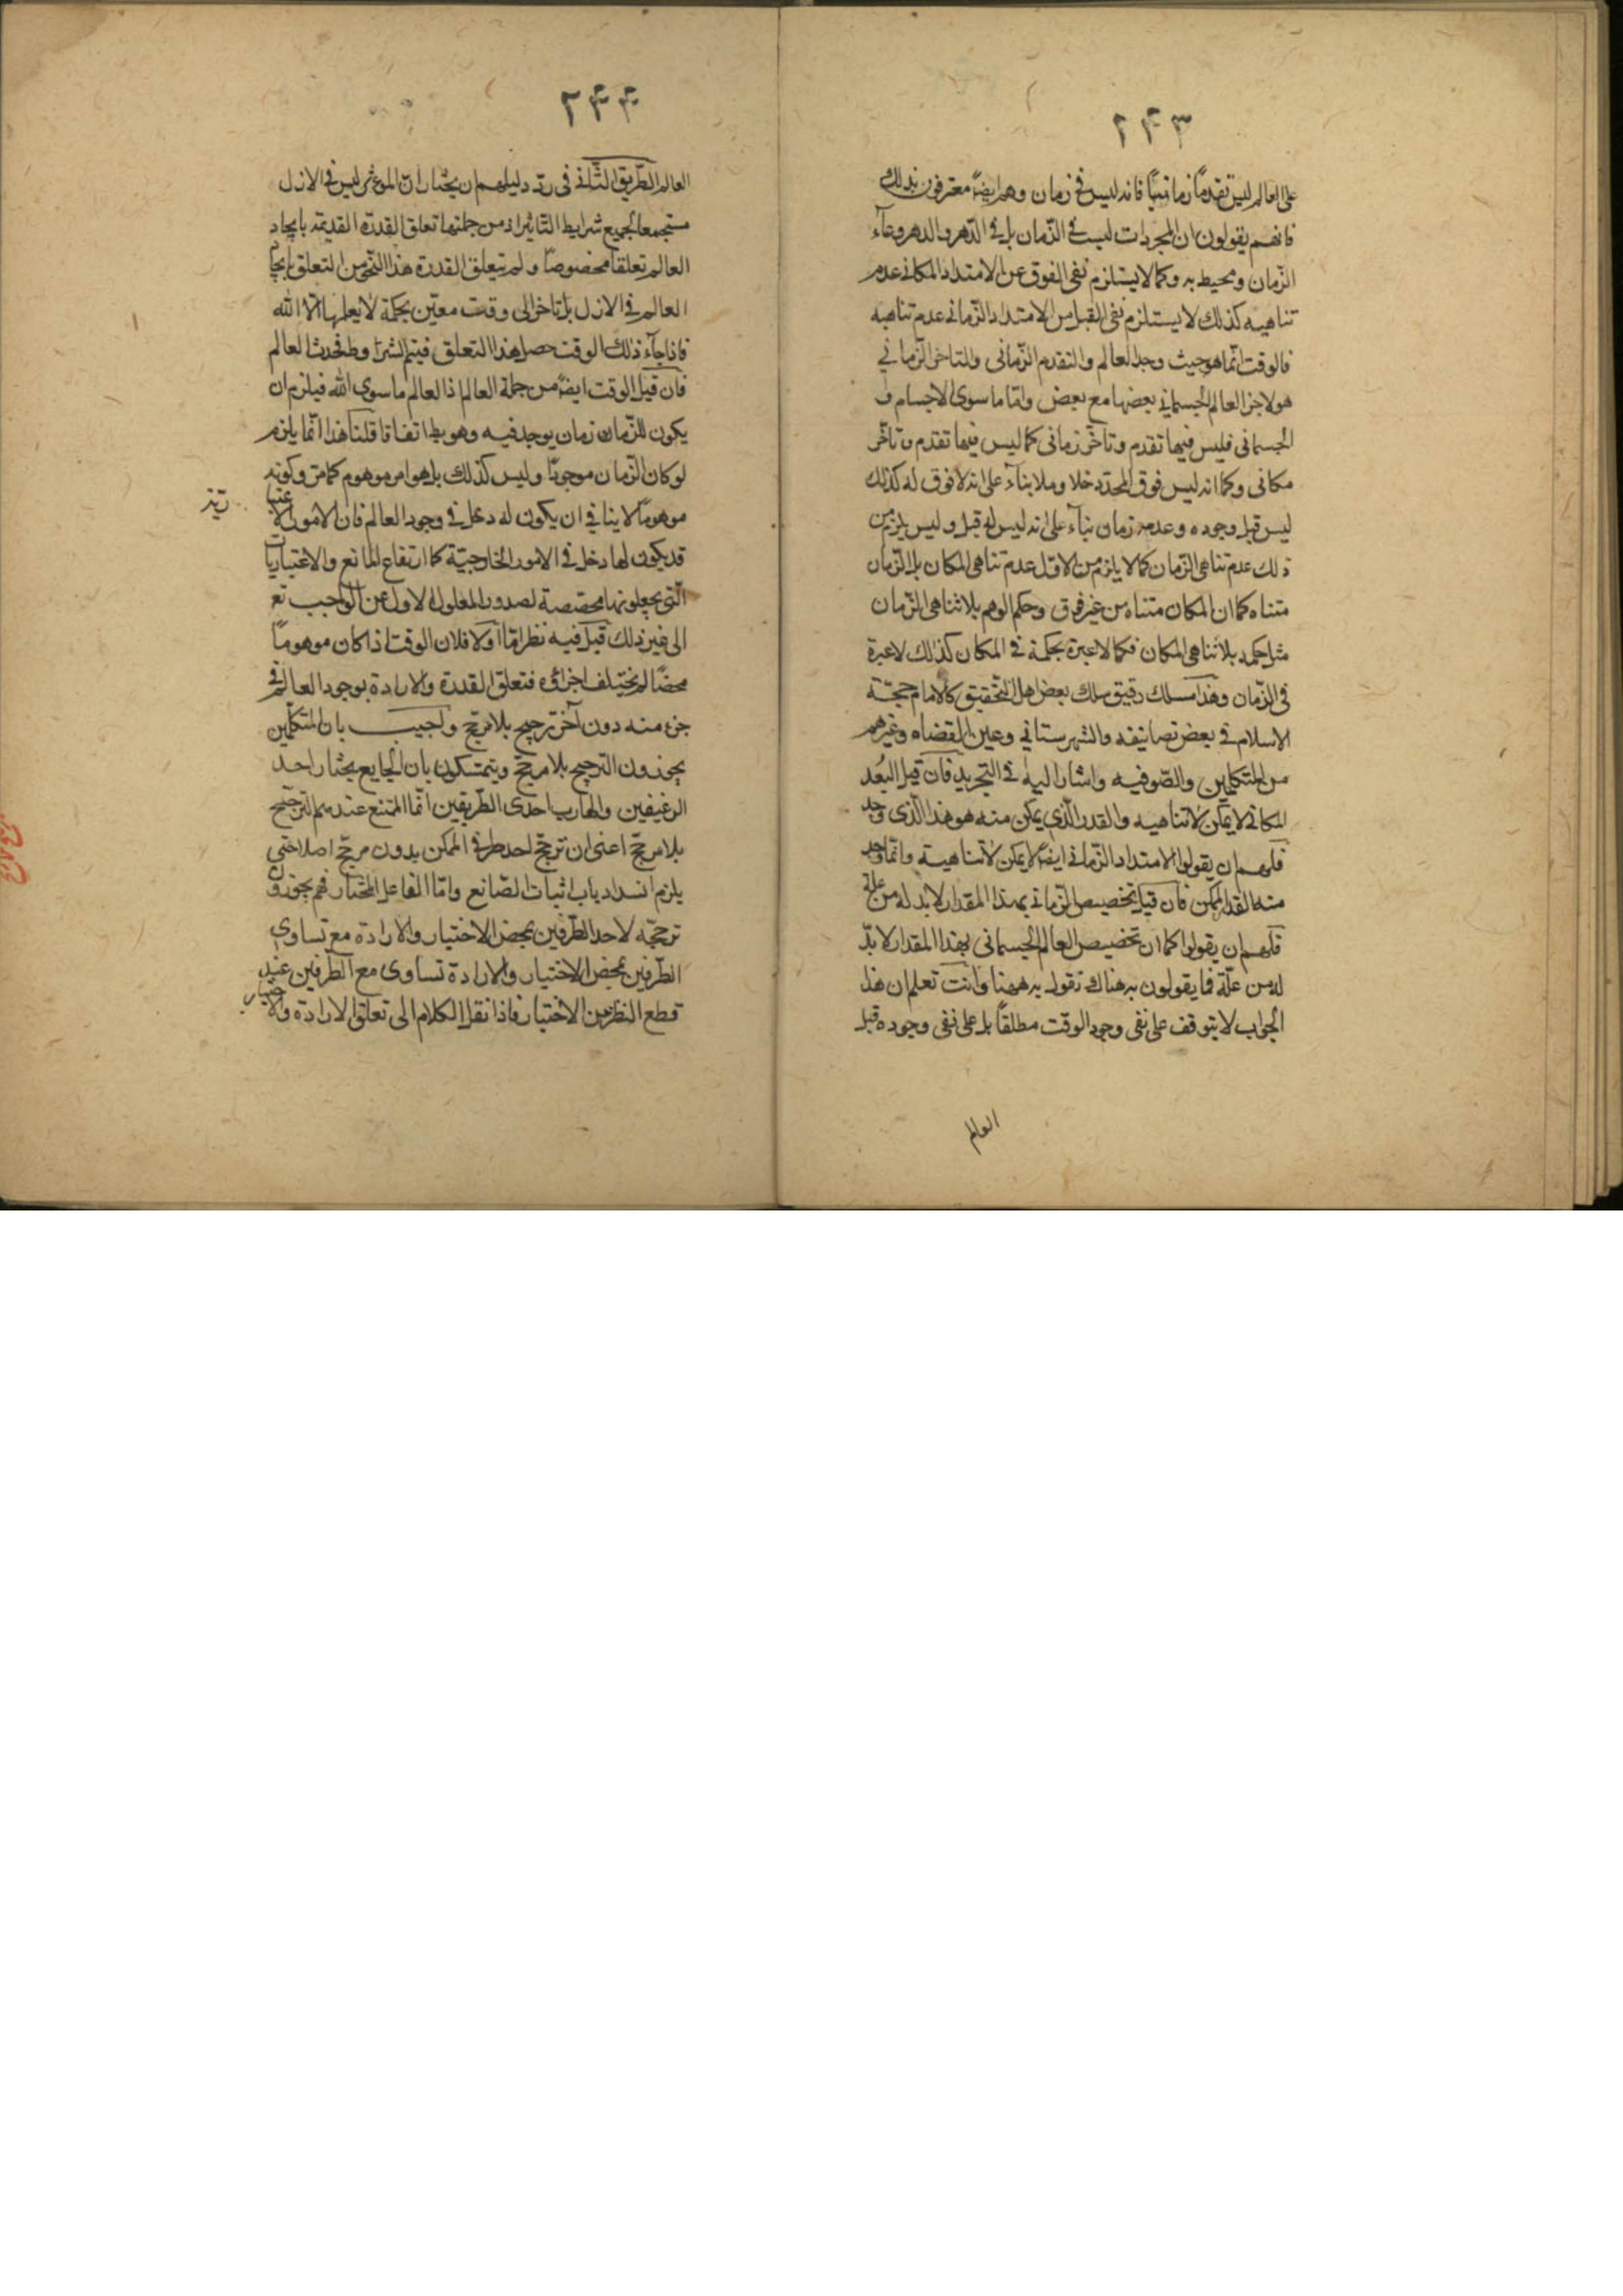 ٢٤٣
على العالم ليس تقدماً زمانيّاً فانه ليس فى زمان وهم ايضاً معترفون بذلك
فانهم يقولون ان المجردات ليست فى الزّمان بل فى الدّهر والدهر وعآء
الزّمان ومحيط به وكما لا يستلزم نفى الفوق عن الامتداد المكانى عدم
تناهيه كذلك لا يستلزم نفى القبل من الامتداد الزّمانى عدم تناهيه
فالوقت انّما هو حيث وجد العالم والتقدم الزّمانى والتاخر الزّمانى
هو لاجزا العالم الجسمانى بعضها مع بعض وامّا ما سوى الاجسام و
الجسمانى فليس فيها تقدم وتاخّر زمانى كما ليس فيها تقدم وتاخّر
مكانى وكما انه ليس فوق المحدّد خلا وملا بنآء على انه لا فوق له كذلك
ليس قبل وجوده وعدمه زمان بنآء على انه ليس له قبل وليس يلزم من
ذلك عدم تناهى الزّمان كما لا يلزم من الاوّل عدم تناهى المكان بل الزّمان
متناه كما ان المكان متناه من غير فرق وحكم الوهم بلا تناهى الزّمان
مثل حكمه بلا تناهى المكان فكما لا عبرة بحكمه فى المكان كذلك لا عبرة
فى الزّمان وهذا مسلك دقيق سلك بعض اهل التّحقيق كالامام حجّة
الاسلام فى بعض تصانيفه والشهرستانى وعين القضاه وغيرهم
من المتكلمين والصّوفيه واشار اليه فى التجريد فان قيل البُعد
المكانى لا يمكن لا تناهيه والقدر الّذى يمكن منه هو هذا الّذى وجد
فلهم ان يقولوا الامتداد الزّمانى ايضاً لا يمكن لا تناهيه وانّما وجد
منه القدر الممكن فان قيل تخصيص الزّمانى بهذا المقدار لا بد له من علة
فلهم ان يقولوا كما ان تخصيص العالم الجسمانى بهذا المقدار لا بدّ
له من علّة فما يقولون به هناك نقول به ههنا وانت تعلم ان هذا
الجواب لا يتوقف على نفى وجود الوقت مطلقاً بل على نفى وجوده قبل
العالم
٢٤٤
العالم الطّريق الثّانى فى ردّ دليلهم ان يختار انّ الموثر ليس فى الازل
مستجمعا لجميع شرايط التّاثير اذ من جملتها تعلق القدرة القديمة بايجاد
العالم تعلقا مخصوصاً ولم يتعلق القدرة هذا النّحو من التعلق بايجاد
العالم فى الازل بل تاخر الى وقت معيّن بحكمة لا يعلمها الّا الله
فاذا جآء ذلك الوقت حصل هذا التعلق فيتم الشرايط فحدث العالم
فان قيل الوقت ايضاً من جملة العالم اذ العالم ما سوى الله فيلزم ان
يكون للزّمان زمان يوجد فيه وهو بط اتفاقا قلنا هذا انّما يلزم
لو كان الزّمان موجودًا وليس كذلك بل هو امر موهوم كما مرّ وكونه
موهوماً لا ينافى ان يكون له دخل فى وجود العالم فان الامور الاعتبا
ريّة
قد يكون لها دخل فى الامور الخارجيّة كما ارتفاع المانع والاعتباريات
الّتى يجعلونها مخصصة لصدور المعلول الاول عن الواجب تع
الى غير ذلك قيل فيه نظر امّا اولا فلان الوقت اذا كان موهوماً
محضاً لم يختلف اجزائه فتعلق القدرة والارادة بوجود العالم فى
جزء منه دون آخر ترجيح بلا مرجّح واجيب بان المتكلّمين
يجوزون الترجيح بلا مرجّح ويتمسّكون بان الجايع يختار احد
الرغيفين والهارب احدى الطّريقين انّما الممتنع عندهم الترجّح
بلا مرجّح اعنى ان ترجّح احد طرفى الممكن بدون مرجّح اصلا حتى
يلزم انسداد باب اثبات الصّانع وامّا الفاعل المختار فهم يجوزون
ترجّحه لاحد الطّرفين بمحض الاختيار والارادة مع تساوى
الطّرفين بمحض الاختيار والارادة تساوى مع الطّرفين عند
قطع النظر من الاختيار فاذا نقل الكلام الى تعلق الارادة والاختيار